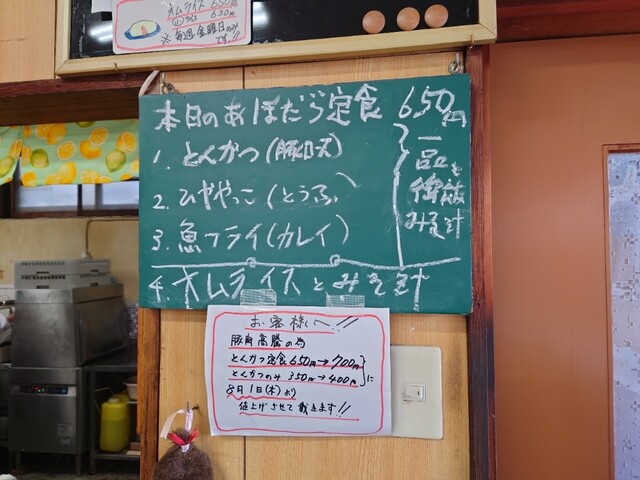 オムライス 650円
ライス 630円
※毎週金曜日のみ
です!!
本日のあほだら定食 650円
1. とんかつ(豚ロース)
2. ひややっこ(とうふ)
3. 魚フライ(カレイ)
一品と
御飯
みそ汁
4. オムライスとみそ汁
お客様へ!!
豚肉高騰の為
とんかつ定食 650円→700円
とんかつのみ 350円→400円
に
8月1日(木)より
値上げさせて頂きます!!